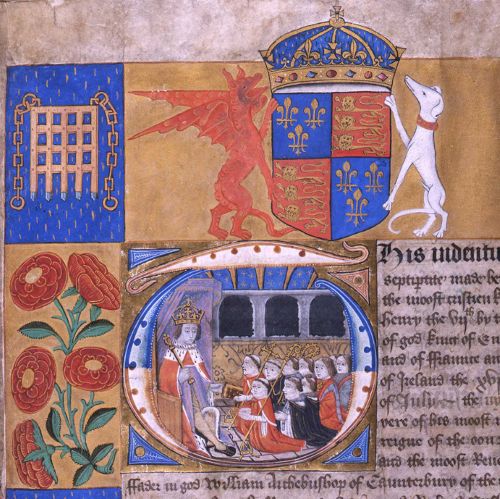 His indentu
septiptite made be
the moost cristien
Henry the vijth by t
of god king of En
and of ffraunce a
of Ireland the xv
of July the
yere of his moost
reigne of the oon
and the moost Reue
ffader in god William Archebushop of Caunterbury of the